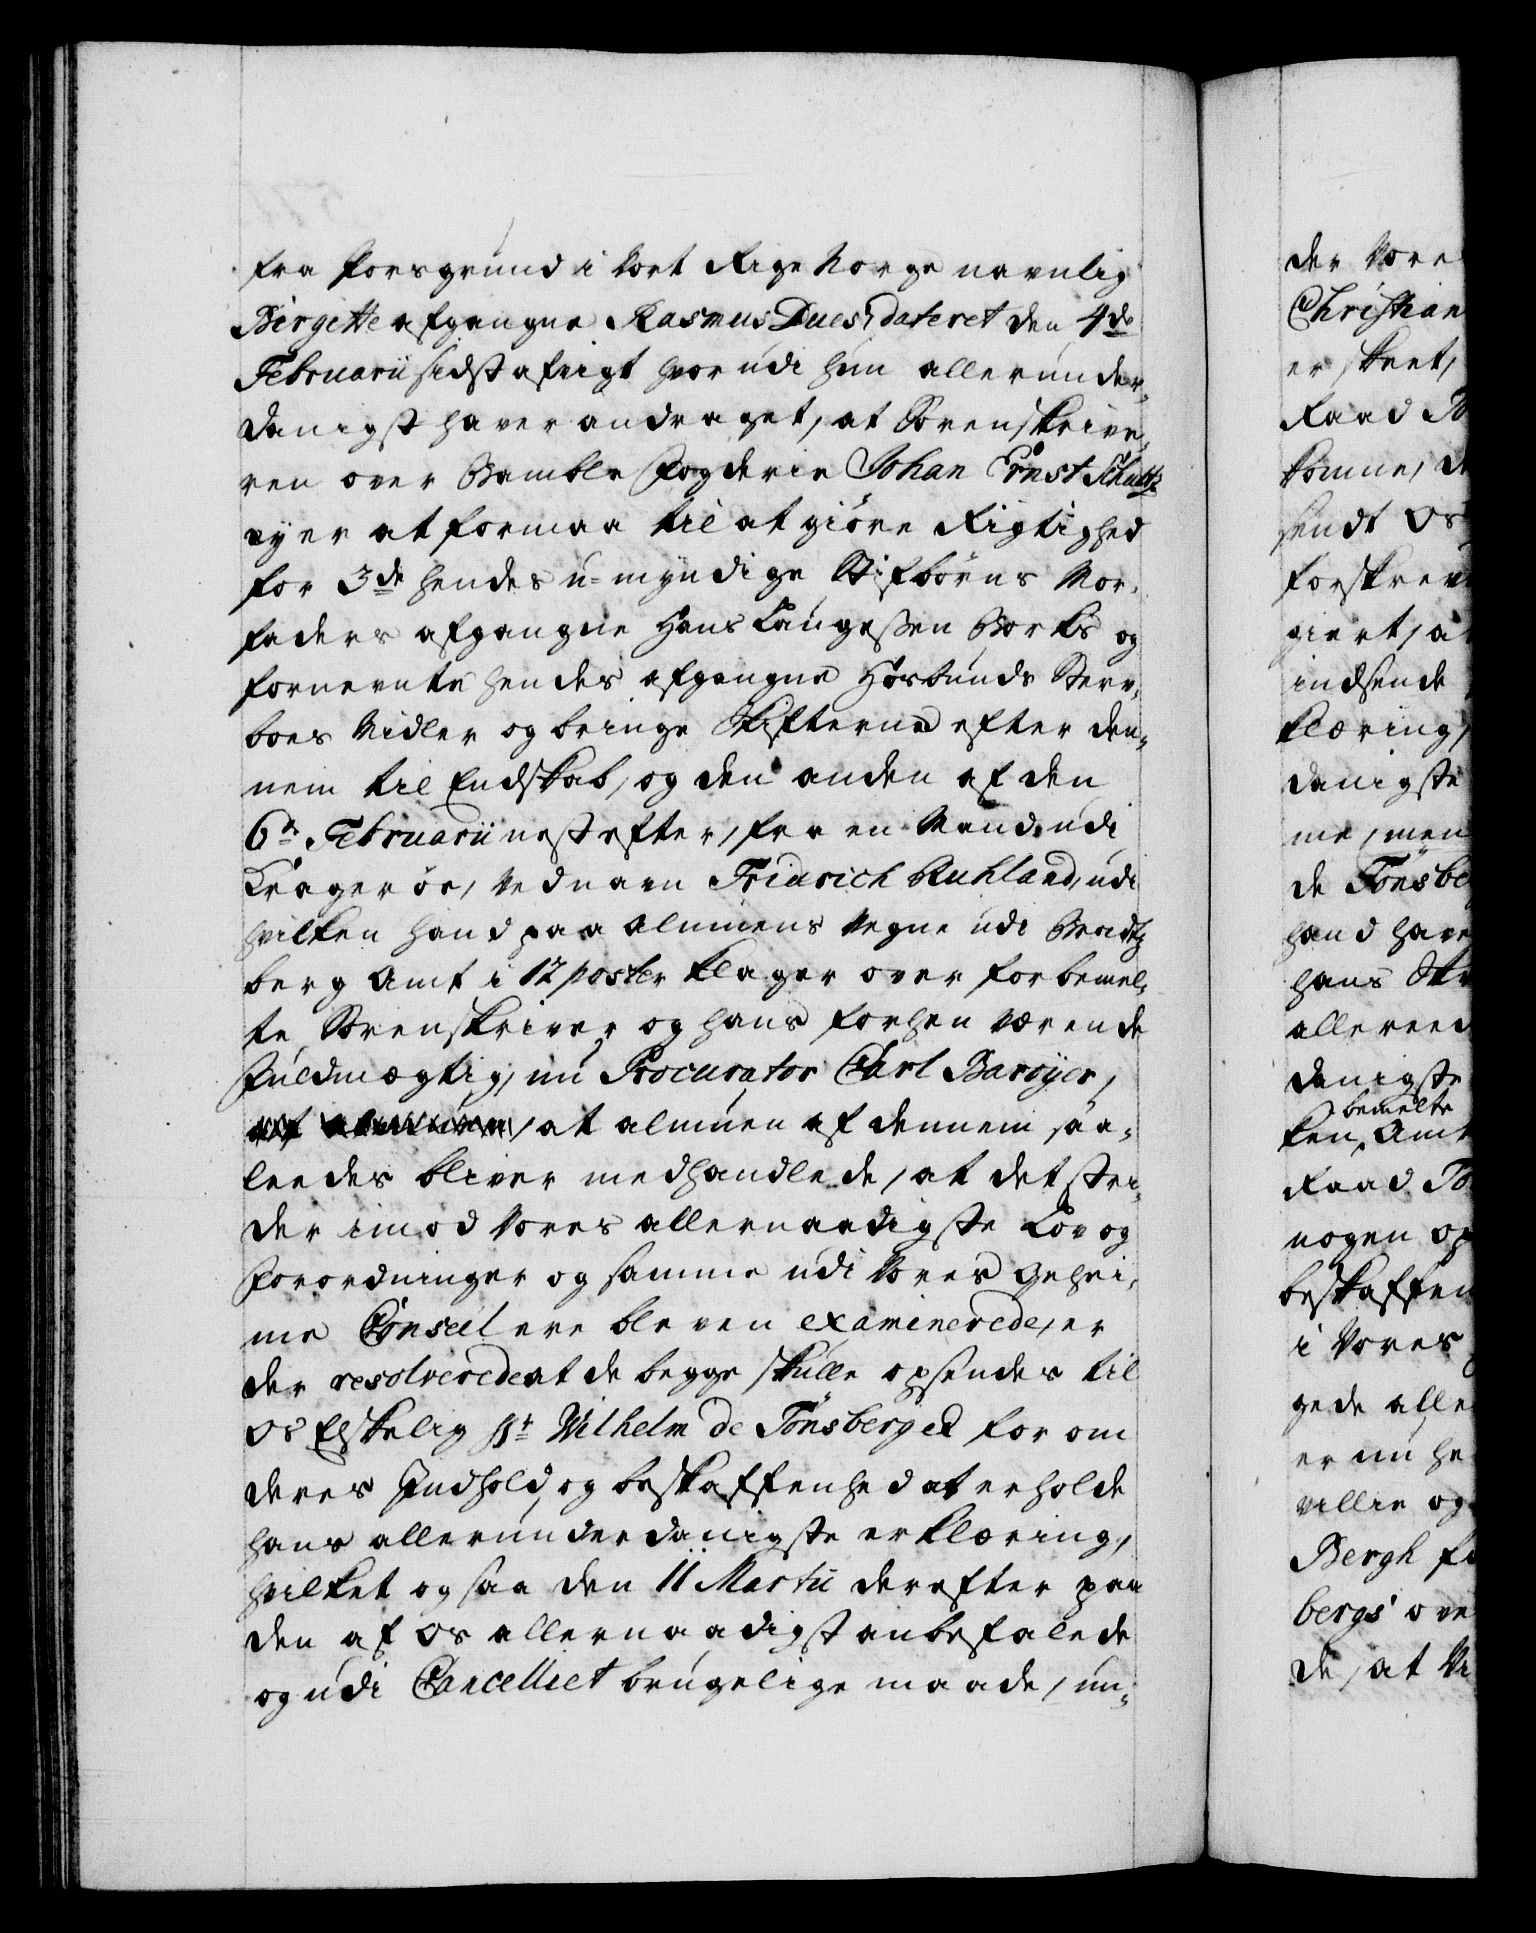 fra Porsgrund i Vort Rige Norge navnlig
Birgette afgangne Rasmus Dues, dateret den 4de
Februarii sidst afvigt hvorudi hun allerunder-
danigst haver andraget, at Sorenskrive-
ren over Bamble Fogderie Johan Ernst Schultz
ej er at formaa til at giöre Rigtighed
for 3de hendes u-myndige Stifbörns Mor-
faders afgangne Hans Laugessen Borks og
fornevnte hendes afgangne Hosbunds Sterv-
boes Midler og bringe Skifterne efter den-
nem til Endskab, og den anden af den
6te Februarii nest efter, fra en Mand udi
Krageröe, ved navn Fridrich Ruhland, udi
hvilken hand paa Almuens Vegne udi Bradtz
berg Amt i 12 poster klager over forbemel-
te Sorenskriver og hans forhen værende
Fuldmægtig, nu Procurator Carl Baroyer,
at almuen af dennem saa-
leedes bliver medhandlede, at det stri-
der imod Vores allernaadigste Lov og
Forordninger og samme udi Vores Gehei-
me Conseil ere bleven examinerede, er
der resolverede at de begge skulle opsendes til
Os Elskelig Hr Wilhelm de Tönsberg ed for om
deres Indhold og beskaffenhed at erholde
hans allerunderdanigste erklæring,
hvilket og saa den 11 Martii derefter paa
den af Os allernaadigst anbefalede
og udi Cancelliet brugelige maade, un-
der Vore
Christian
er skeet,
Raad To
komme, de
sendt Os
forskrev
giert, at
indsende
klæring,
danigste
me, men
de Tönsbe
hand have
hans Skr
allereed
danigste
bemelte
ken Amt
Raad To
nogen op
beskaffen
i Vores
gede alle
er nu he
villie og
Bergh fr
bergs ove
de, at Vi